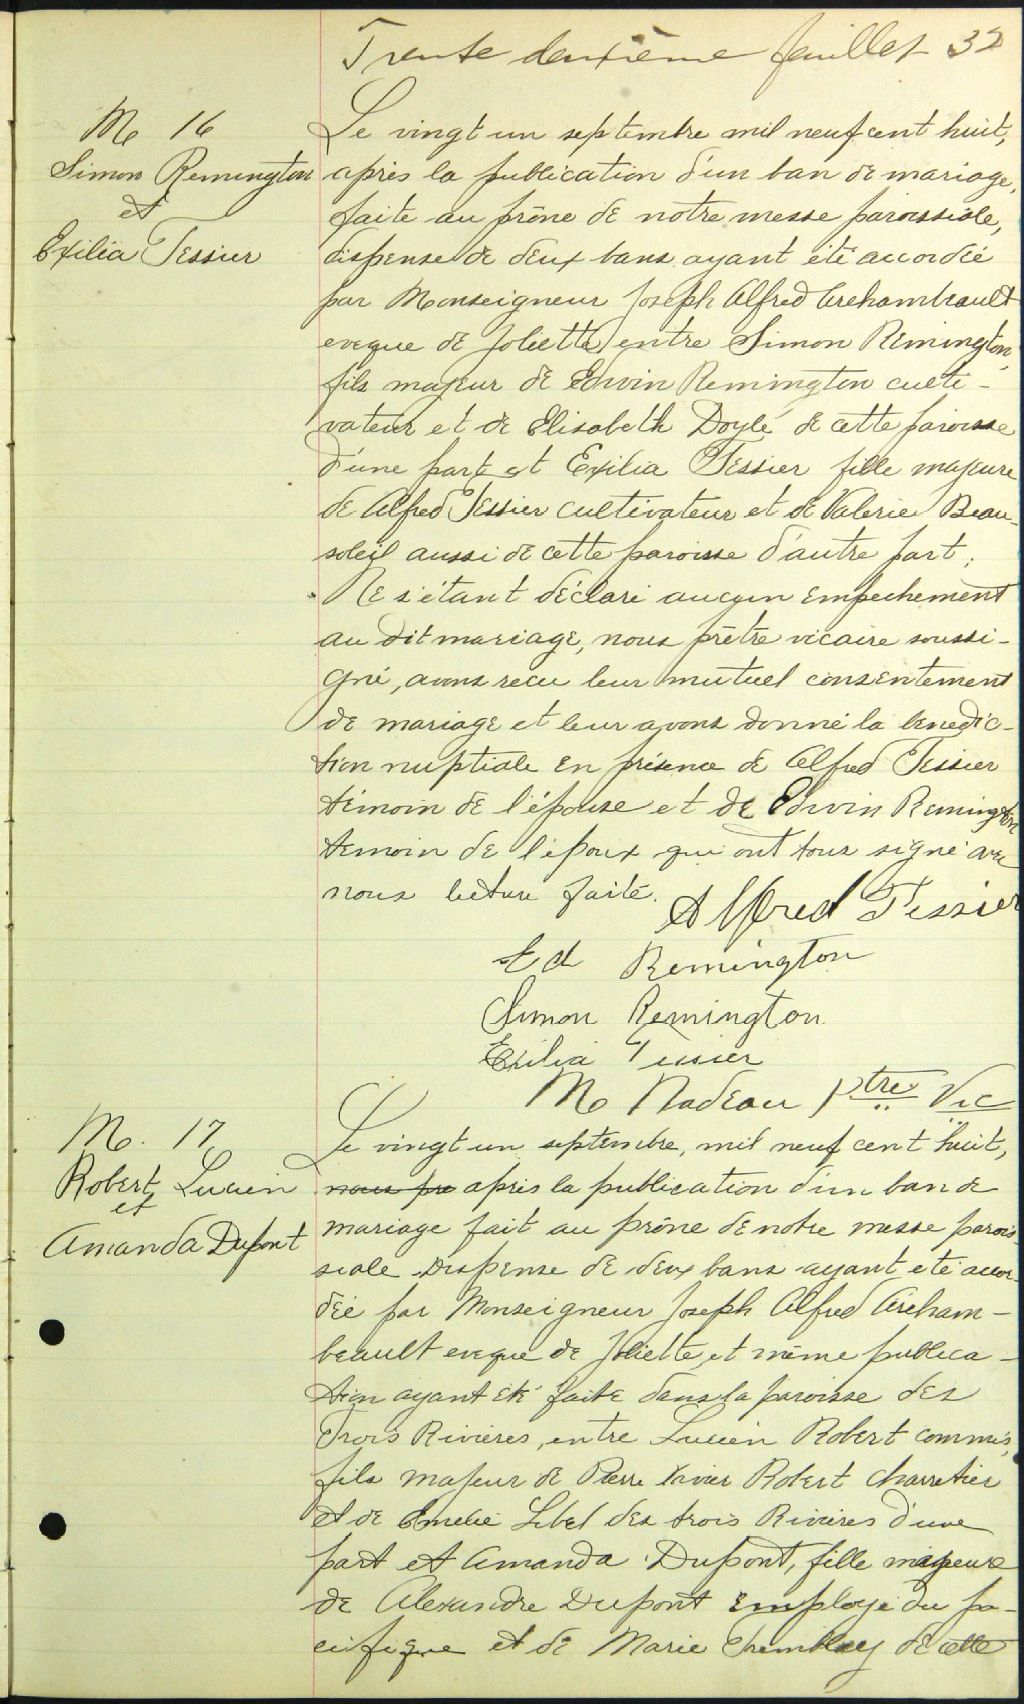 Trente deuxième feuillet 32
M 16
Simon Remington
et
Exilia Tessier
Le vingt un septembre mil neuf cent huit,
après la publication d'un ban de mariage,
faite au prône de notre messe paroissiale,
dispense de deux bans ayant été accordée
par Monseigneur Joseph Alfred Archambeault
eveque de Joliette, entre Simon Remington,
fils majeur de Edwin Remington culti-
vateur et de Elisabeth Doyle de cette paroisse
d'une part et Exilia Tessier fille majeure
de Alfred Tessier cultivateur et de Valerie Beau-
soleil aussi de cette paroisse d'autre part.
Ne s'étant déclaré aucun empechement
au dit mariage, nous prêtre vicaire soussi-
gné, avons recu leur mutuel consentement
de mariage et leur avons donné la benedic-
tion nuptiale en présence de Alfred Tessier
témoin de l'épouse et de Edwin Remington
temoin de l'époux qui ont tous signé avec
nous lecture faite.
Alfred Tessier
Ed Remington
Simon Remington
Exilia Tessier
M Nadeau Ptre Vic
M. 17
Robert Lucien
et
Amanda Dupont
Le vingt un septembre, mil neuf cent huit,
nous pre après la publication d'un ban de
mariage fait au prône de notre messe parois-
siale dispense de deux bans ayant eté accor-
dée par Monseigneur Joseph Alfred Archam-
beault eveque de Joliette, et même publica-
tion ayant été faite dans la paroisse des
Trois Rivieres, entre Lucien Robert commis,
fils majeur de Pierre Xavier Robert charretier
et de Emelie Lebel des trois Rivieres d'une
part et Amanda Dupont, fille majeure
de Alexandre Dupont employé du pa-
cifique et de Marie Tremblay de cette